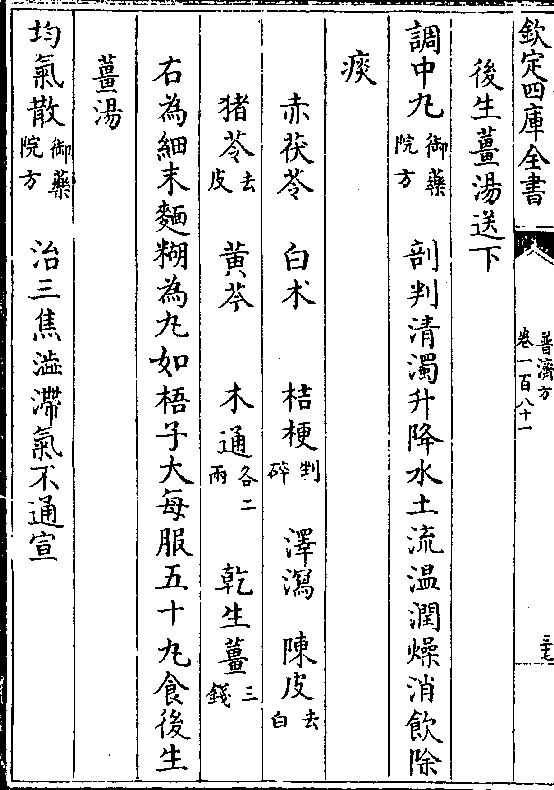 欽定四庫全書
普濟方
卷一百八十一
三七
後生薑湯送下
調中丸御藥院方 剖判清濁升降水土流温潤燥消飲除
痰
赤茯苓 白术 桔梗剉碎 澤瀉 陳皮去白
猪苓去皮 黄芩 木通各二兩 乾生薑三錢
右為細末麵糊為丸如梧子大每服五十丸食後生
薑湯
均氣散御藥院方 治三焦澁滯氣不通宣